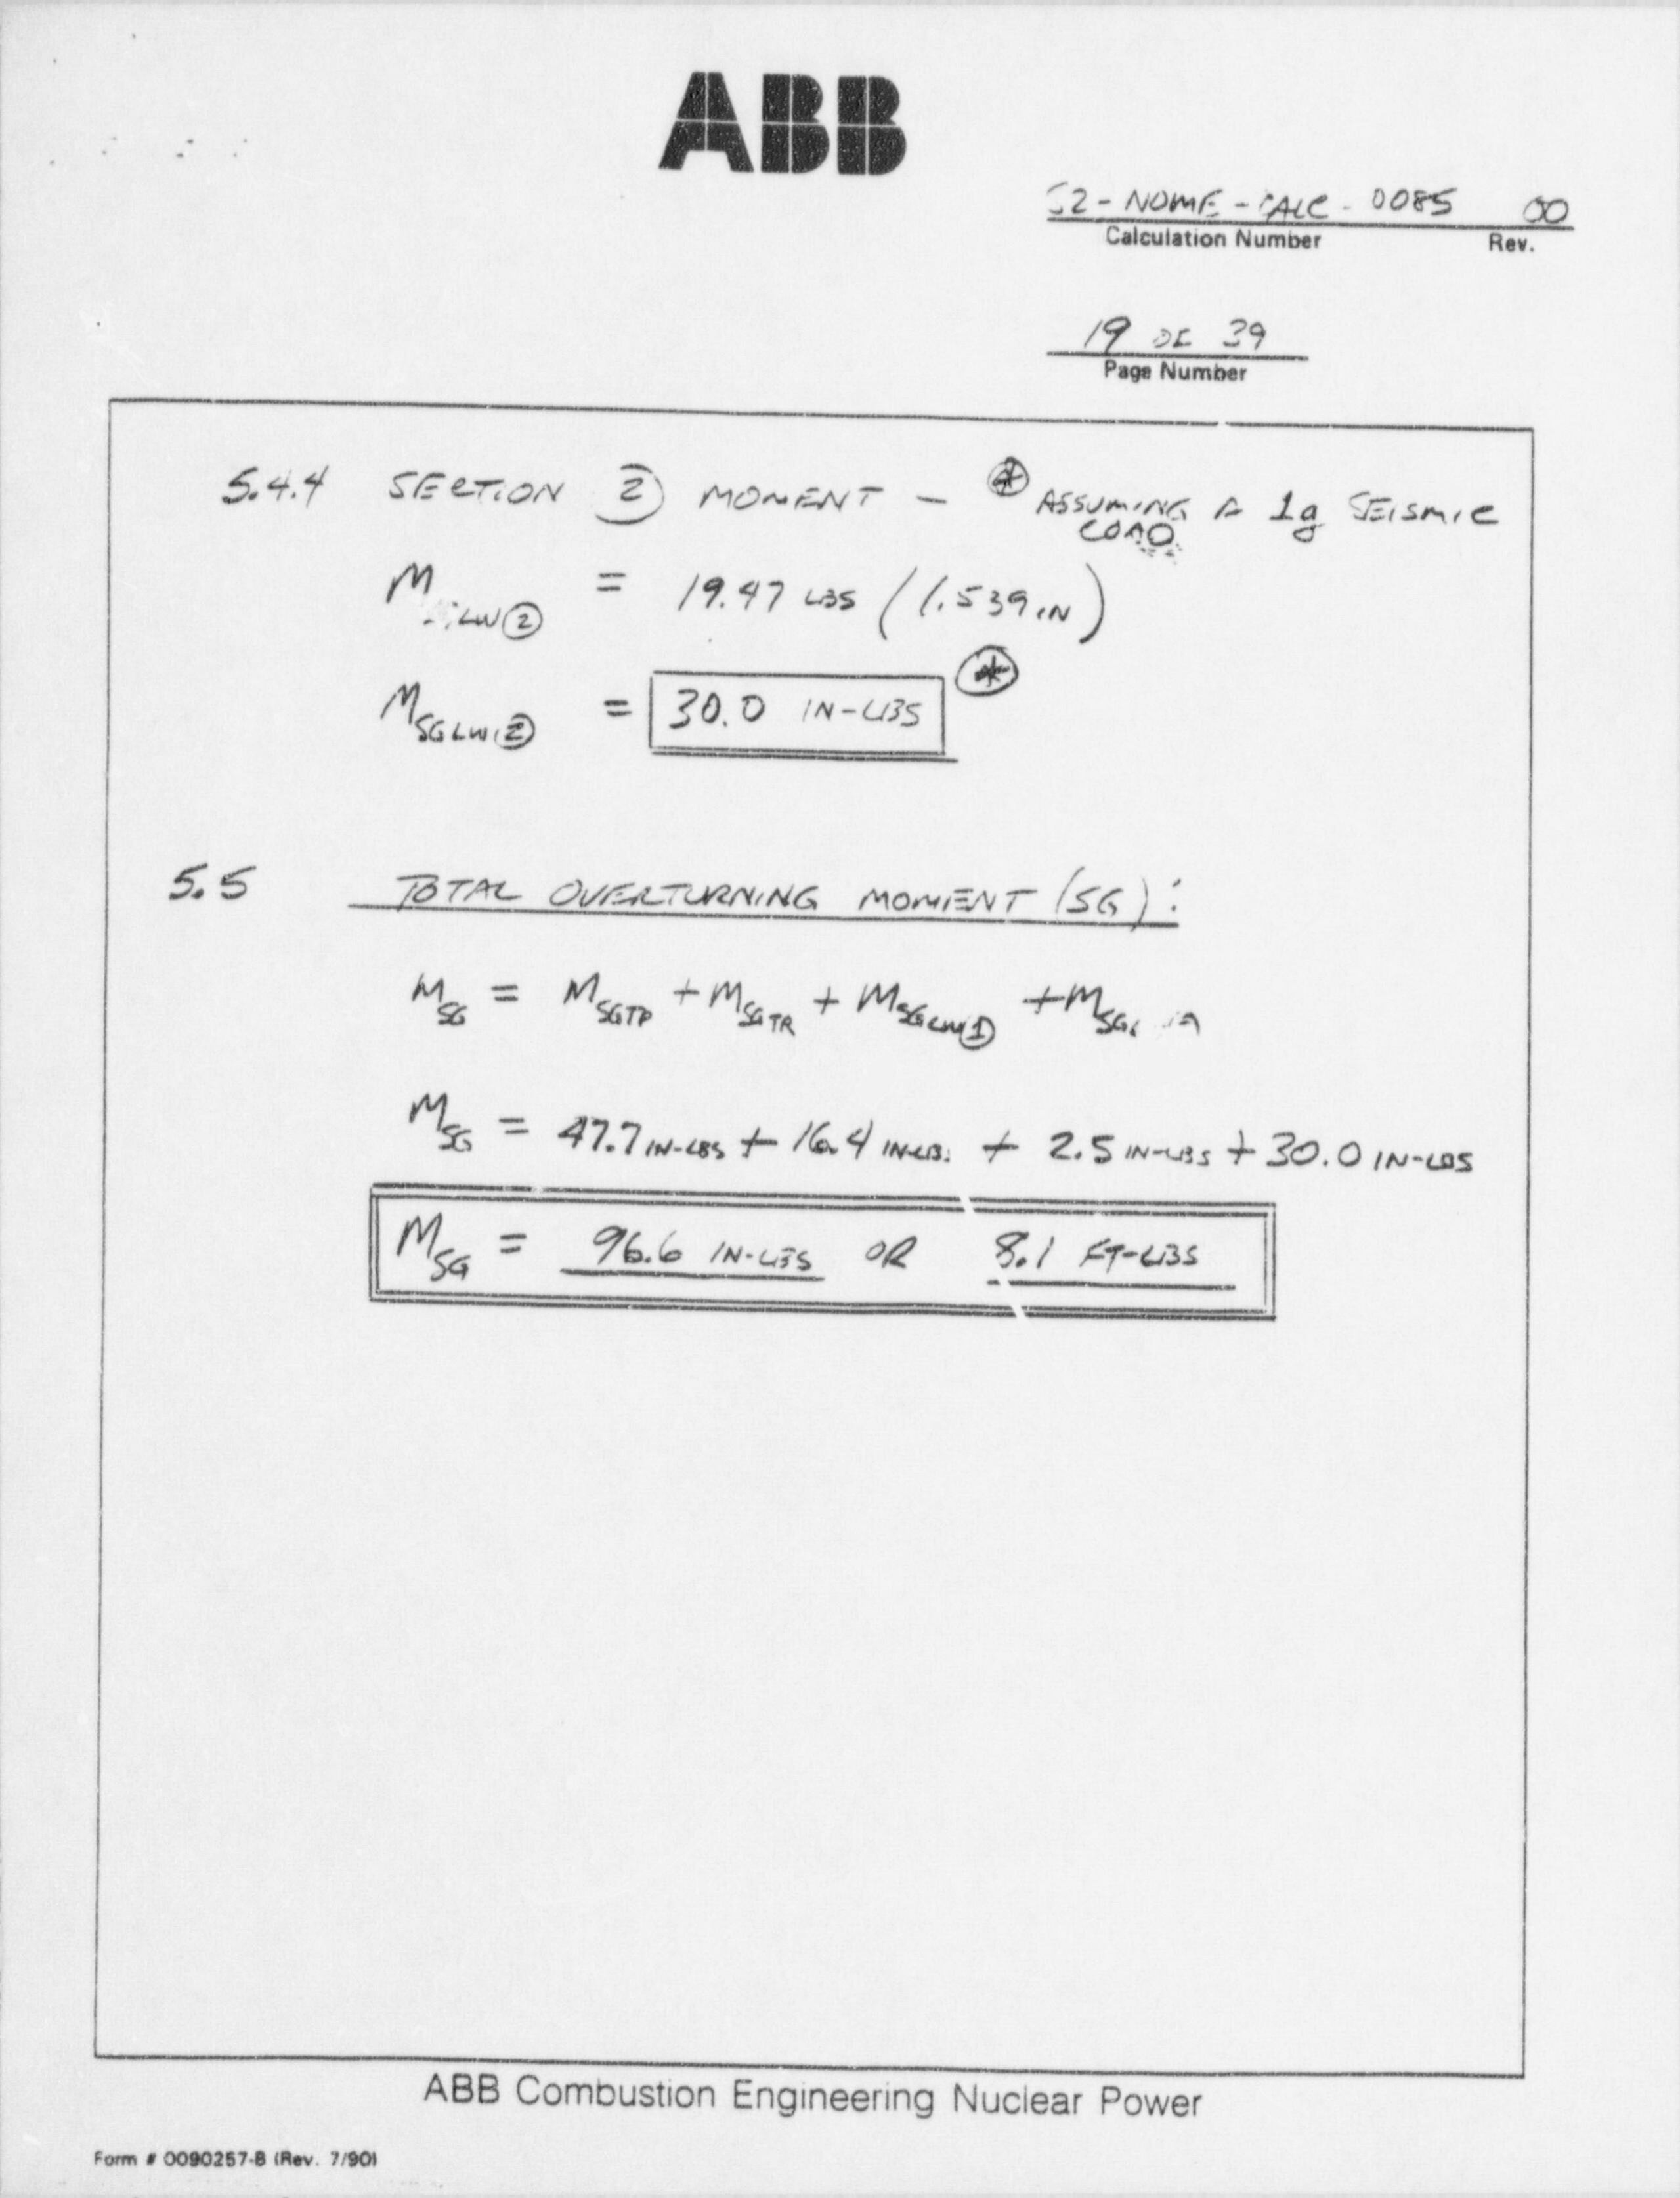 ABB
S2-NOME-CALC-0085 00
Calculation Number Rev.
19 OF 39
Page Number
5.4.4 SECTION ② MOMENT - ⊛ ASSUMING A 1g SEISMIC
LOAD
M LW② = 19.47 LBS (1.539 IN)
M SGLW② = 30.0 IN-LBS ⊛
5.5 TOTAL OVERTURNING MOMENT (SG):
M SG = M SGTP + M SGTR + M SGLW① + M
M SG = 47.7 IN-LBS + 16.4 IN-LBS + 2.5 IN-LBS + 30.0 IN-LBS
M SG = 96.6 IN-LBS OR 8.1 FT-LBS
ABB Combustion Engineering Nuclear Power
Form # 0090257-B (Rev. 7/90)